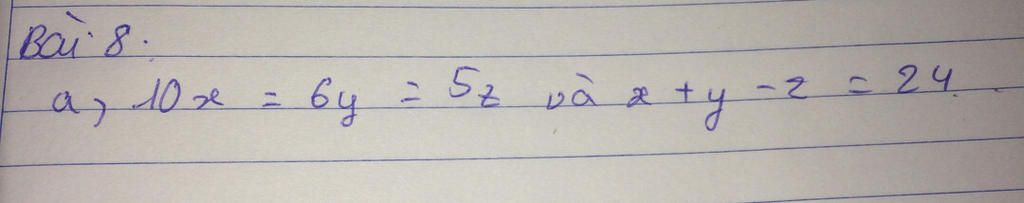 Bài 8.
a, 10x = 6y = 5z và x + y - z = 24.